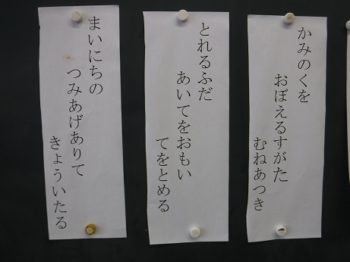 かみのくを
おぼえるすがた
むねあつき
とれるふだ
あいてをおもい
てをとめる
まいにちの
つみあげありて
きょういたる